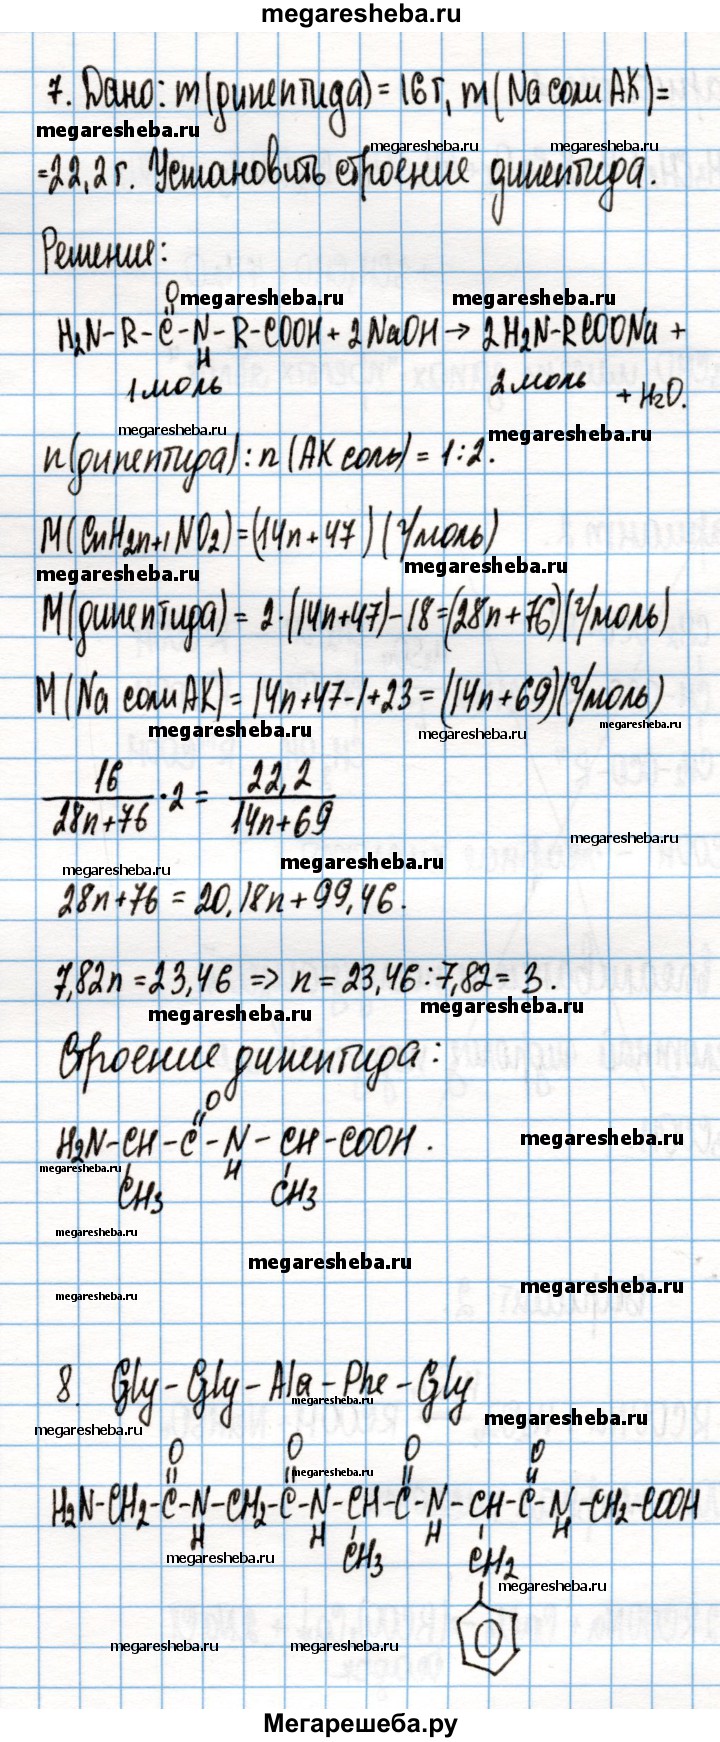 megaresheba.ru
7. Дано: m(дипептида) = 16 г, m(Na соли АК) =
megaresheba.ru
megaresheba.ru
megaresheba.ru
= 22,2 г. Установить строение дипептида.
Решение:
O
megaresheba.ru
megaresheba.ru
H₂N-R-C-N-R-COOH + 2NaOH → 2H₂N-RCOONa +
H
1 моль
2 моль
+ H₂O.
megaresheba.ru
megaresheba.ru
n(дипептида) : n(АК соль) = 1 : 2.
M(CnH2n+1NO2) = (14n+47) (г/моль)
megaresheba.ru
megaresheba.ru
M(дипептида) = 2·(14n+47)-18 = (28n+76)(г/моль)
M(Na соли АК) = 14n+47-1+23 = (14n+69)(г/моль)
megaresheba.ru
megaresheba.ru
megaresheba.ru
16/(28n+76) · 2 = 22,2/(14n+69)
megaresheba.ru
megaresheba.ru
megaresheba.ru
28n+76 = 20,18n+99,46.
7,82n = 23,46 => n = 23,46 : 7,82 = 3.
megaresheba.ru
megaresheba.ru
Строение дипептида:
O
H₂N-CH-C-N-CH-COOH.
megaresheba.ru
megaresheba.ru
H
CH3
CH3
megaresheba.ru
megaresheba.ru
megaresheba.ru
megaresheba.ru
8. Gly-Gly-Ala-Phe-Gly
megaresheba.ru
megaresheba.ru
megaresheba.ru
O O O O
megaresheba.ru
H₂N-CH2-C-N-CH2-C-N-CH-C-N-CH-C-N-CH2-COOH
H H H H
CH3 CH2
megaresheba.ru
megaresheba.ru
megaresheba.ru
megaresheba.ru
Мегарешеба.ру